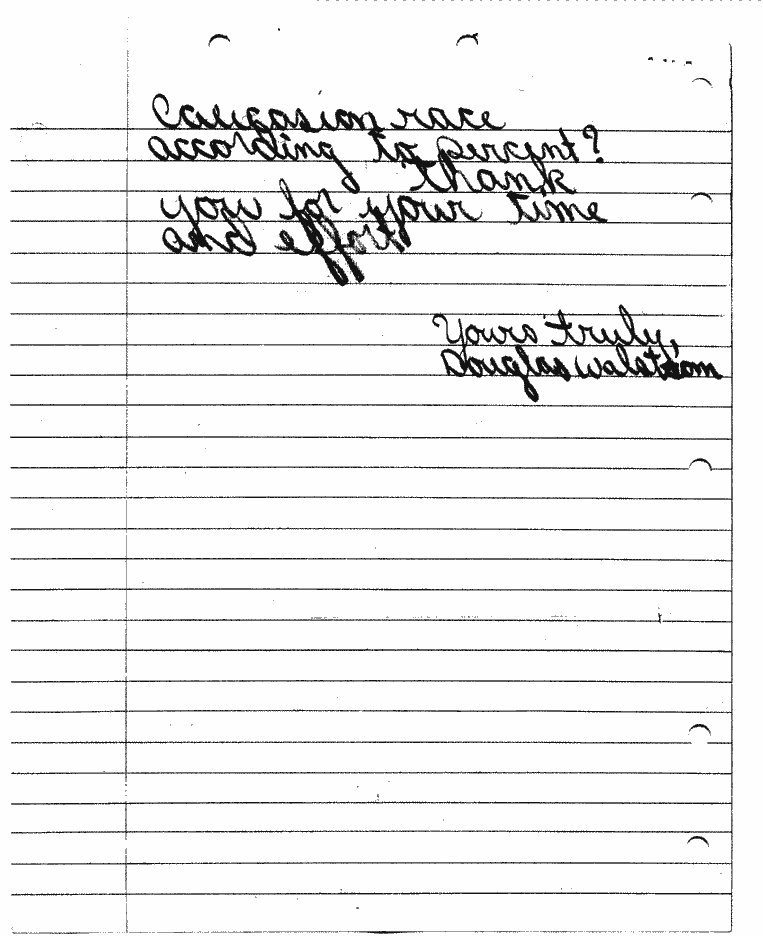 Caucasion race
according to percent?
thank
you for your time
and effort
Yours truly,
Douglas Walstrom